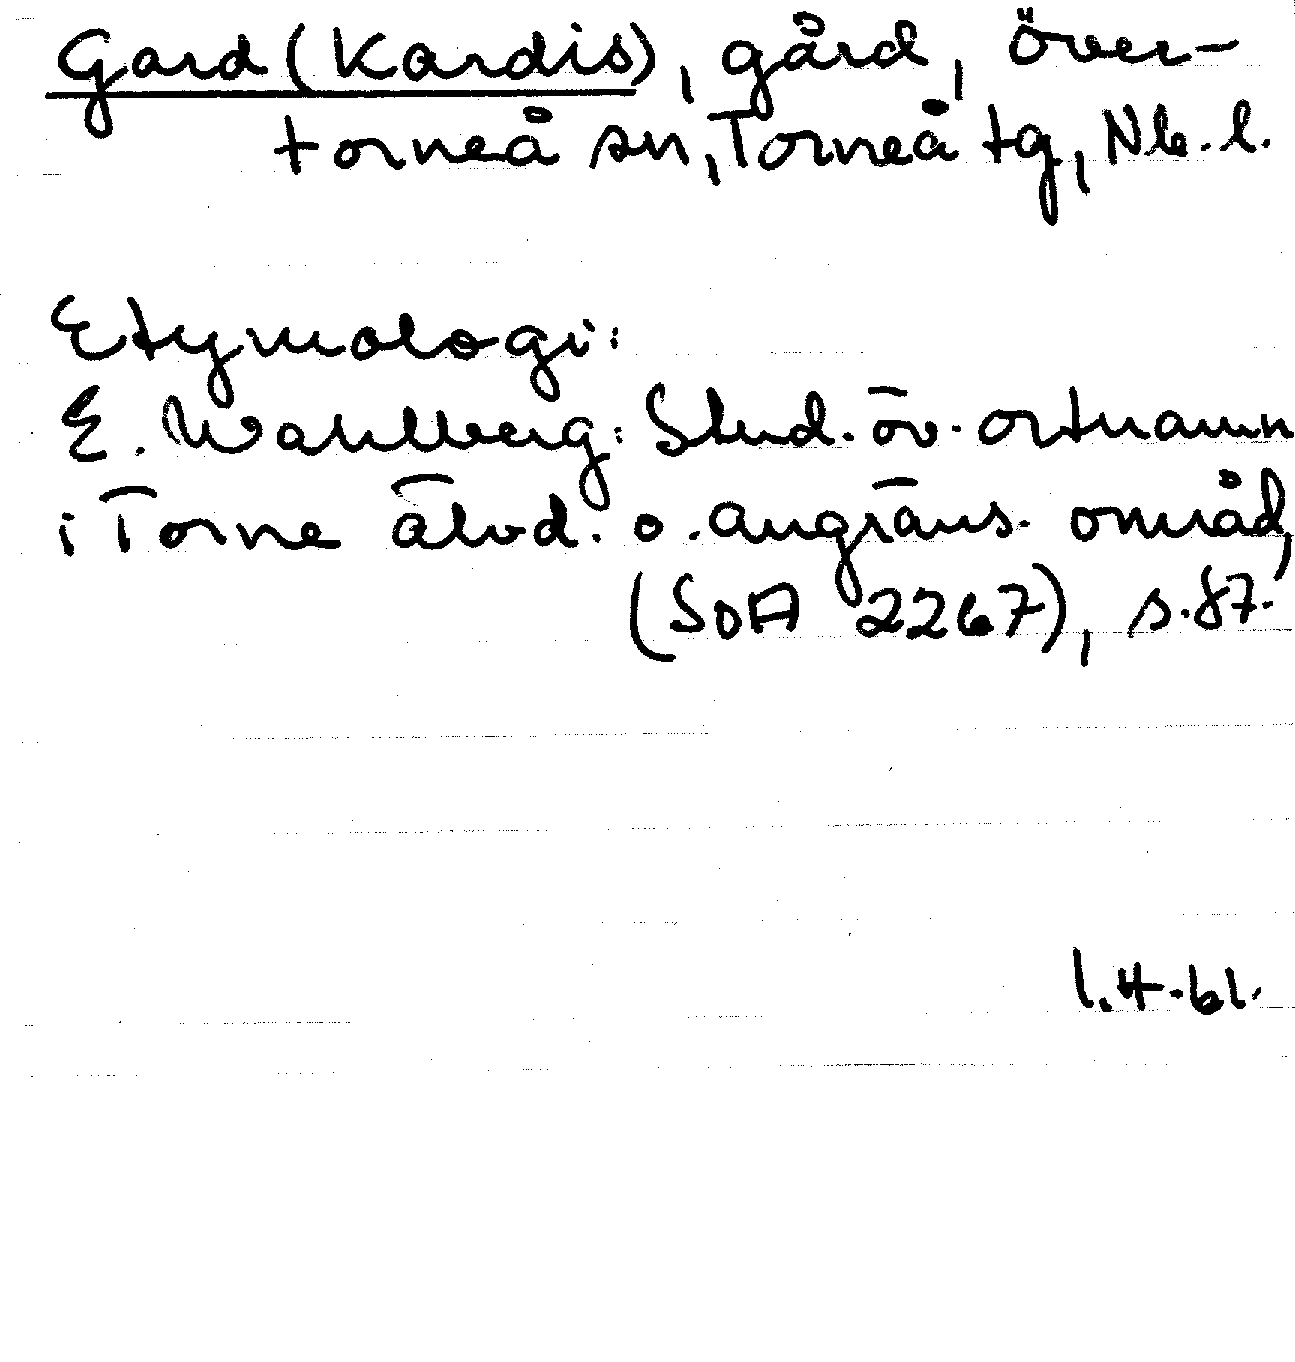 Gard (Kardis), gård, Över-
torneå sn, Torneå tg, Nb. l.
Etymologi:
E. Wahlberg: Stud. öv. ortnamn
i Torne älvd. o. angräns. områd,
(SOA 2267), s. 87.
1.4.61.